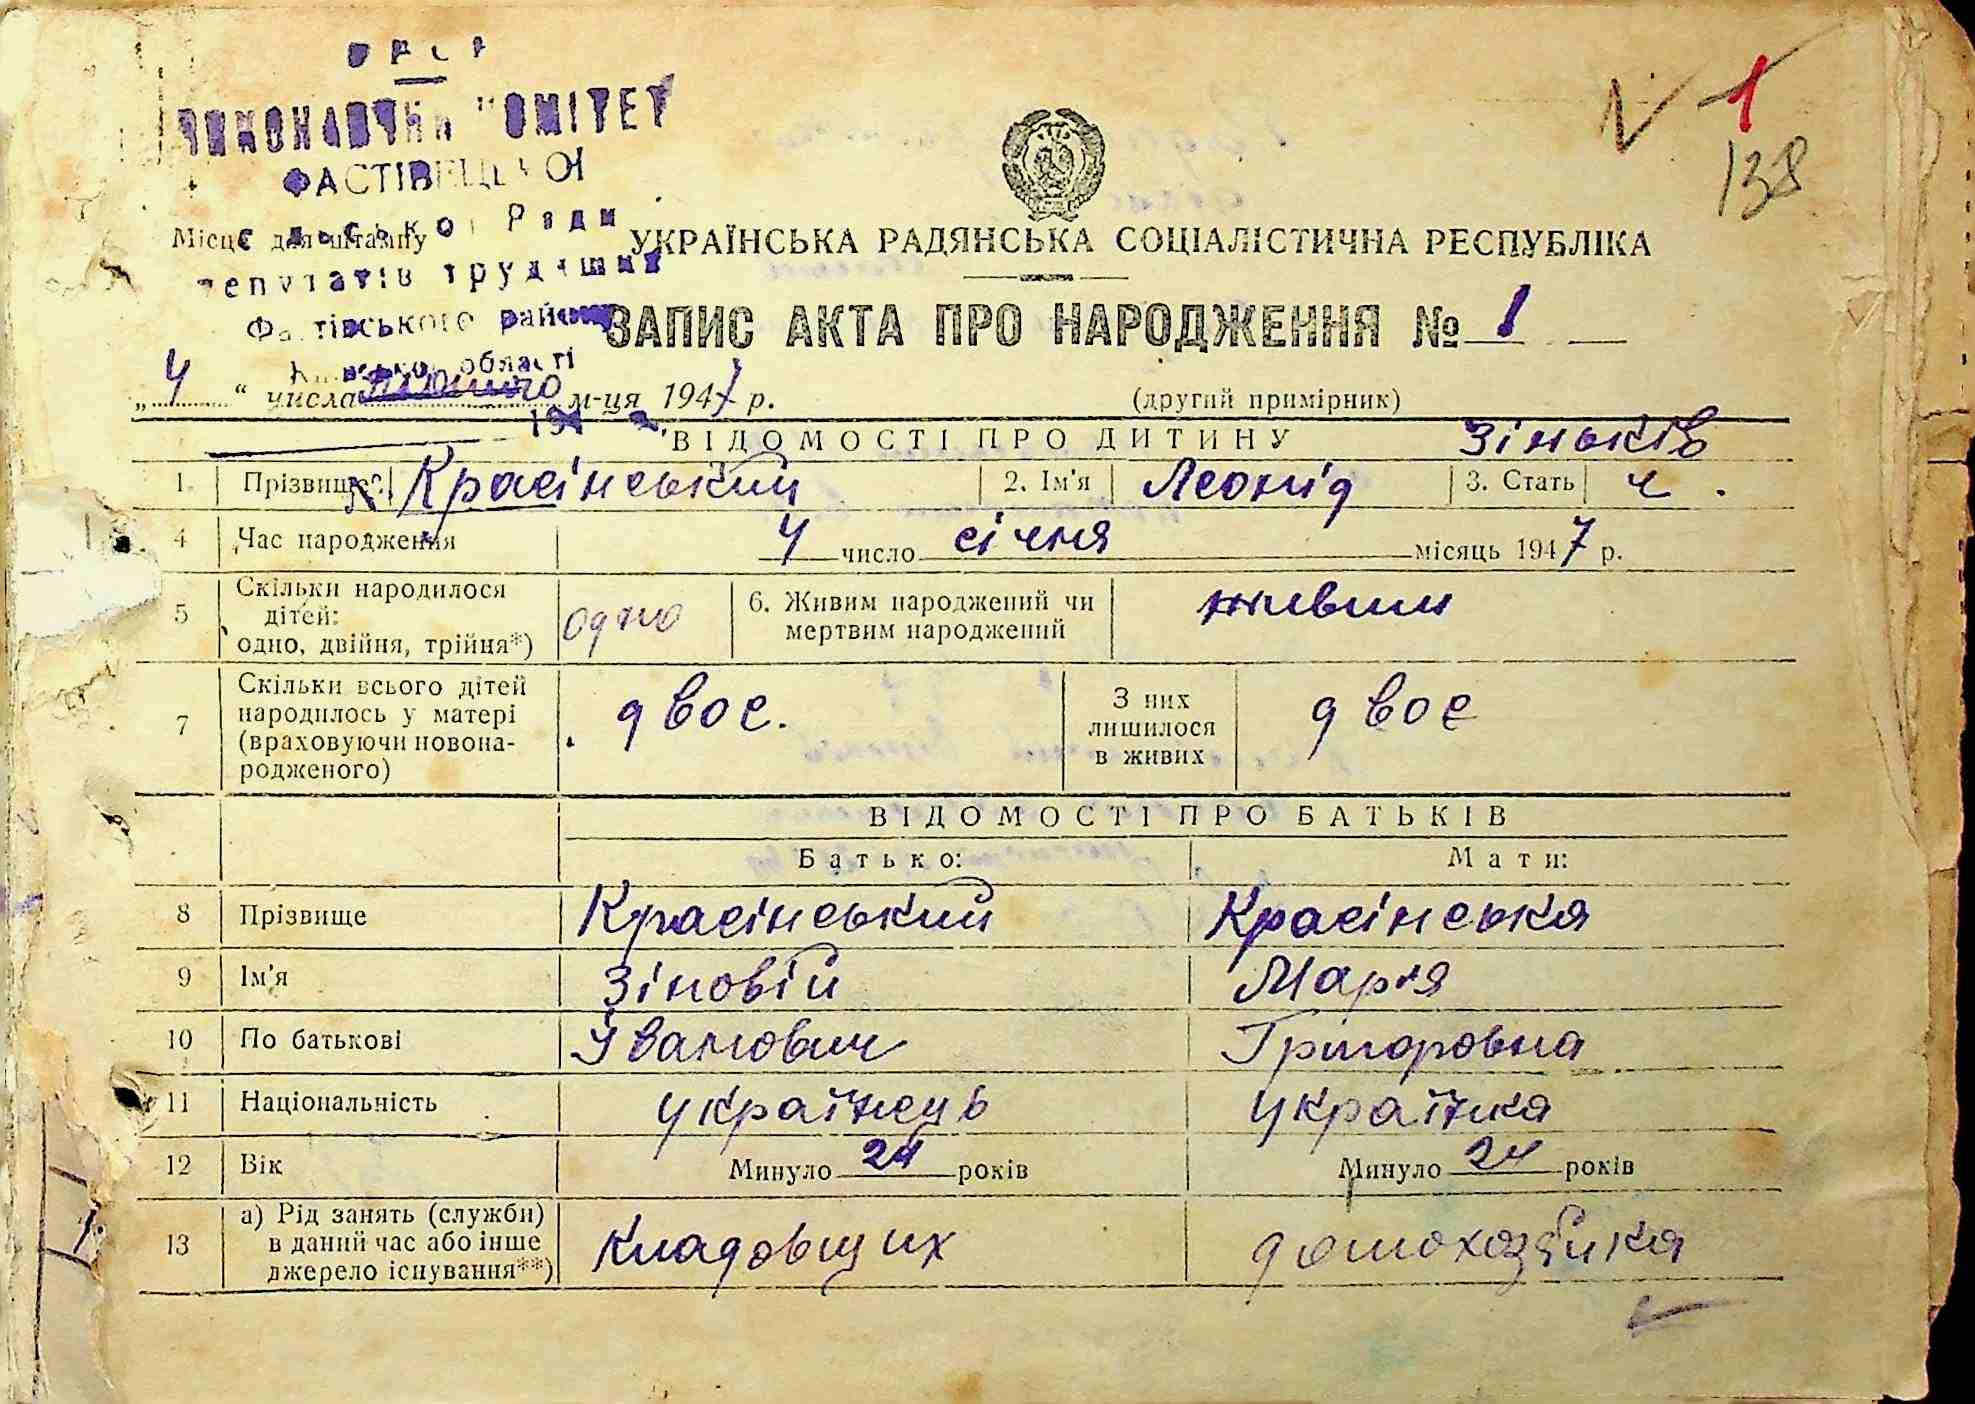 УРСР
ВИКОНАВЧИЙ КОМІТЕТ
ФАСТІВЕЦЬКОЇ
сільської Ради
депутатів трудящих
Фастівського району
Київської області
№ 1
138
Місце для штампу
УКРАЇНСЬКА РАДЯНСЬКА СОЦІАЛІСТИЧНА РЕСПУБЛІКА
ЗАПИС АКТА ПРО НАРОДЖЕННЯ № 1
„4“ числа лютого м-ця 1947 р.
(другий примірник)
194
ВІДОМОСТІ ПРО ДИТИНУ
Зіньків
1. Прізвище Красінський 2. Ім'я Леонід 3. Стать ч.
4 Час народження 4 число січня місяць 1947 р.
5 Скільки народилося дітей: одно, двійня, трійня*) одно 6. Живим народжений чи мертвим народжений живим
7 Скільки всього дітей народилось у матері (враховуючи новона-родженого) двоє. З них лишилося в живих двоє
ВІДОМОСТІ ПРО БАТЬКІВ
Батько: Мати:
8 Прізвище Красінський Красінська
9 Ім'я Зіновій Марія
10 По батькові Іванович Григоровна
11 Національність українець українка
12 Вік Минуло 24 років Минуло 24 років
13 а) Рід занять (служби) в даний час або інше джерело існування**) Кладовщик домохозяйка